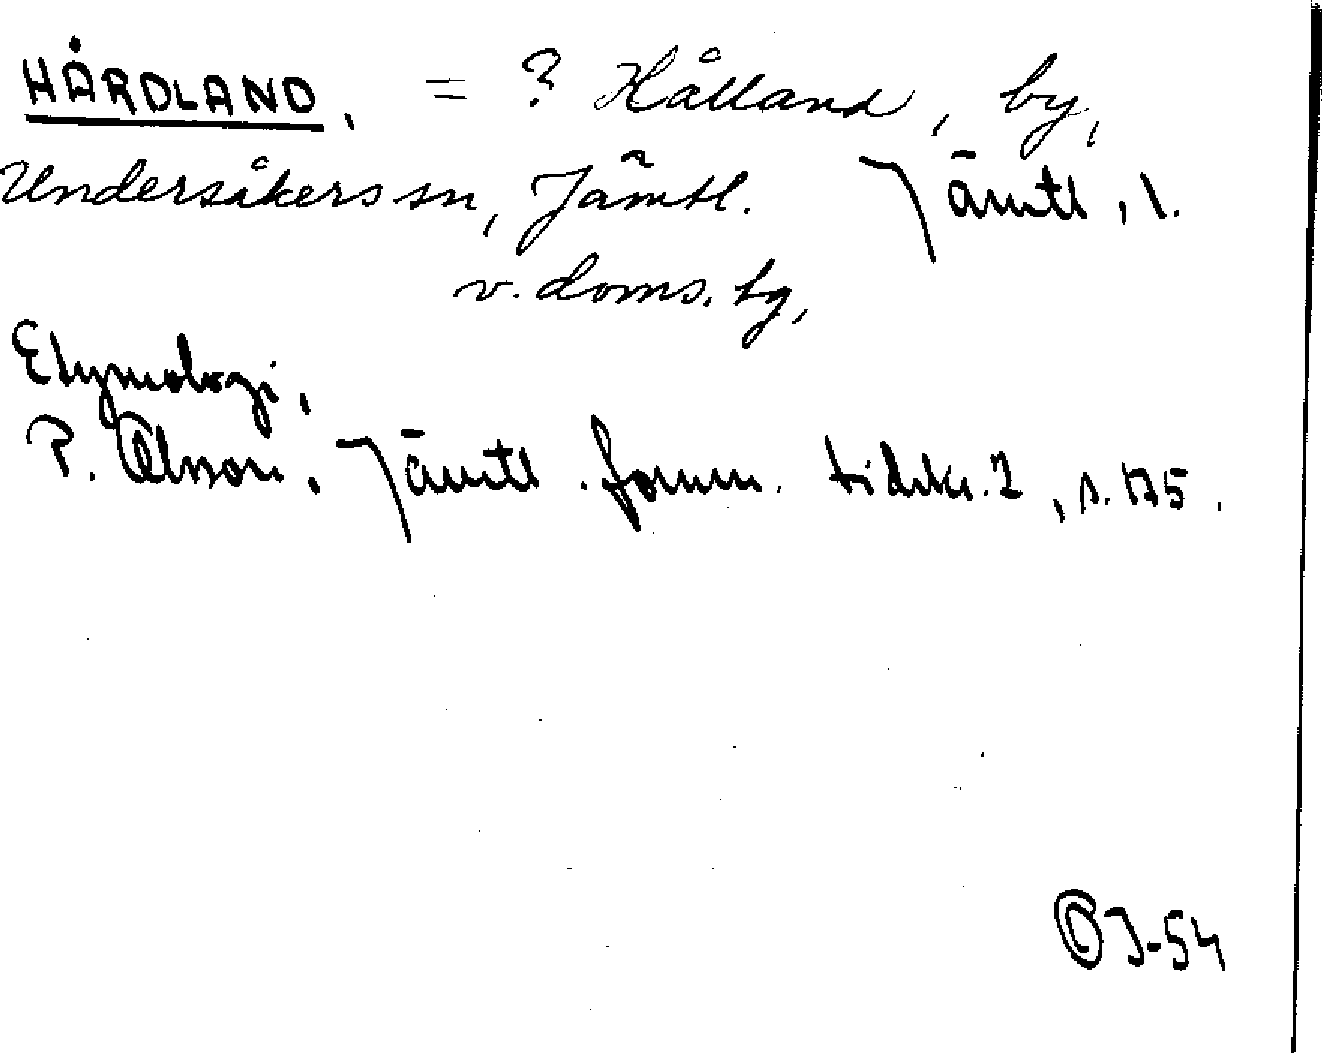 HÅRDLAND, = ? Hålland, by,
Undersåkers sn, Jämtl. Jämtl, l.
v. doms. tg,
Etymologi,
P. Olsson, Jämtl. fornm. tidskr. 2, s. 175.
J-54